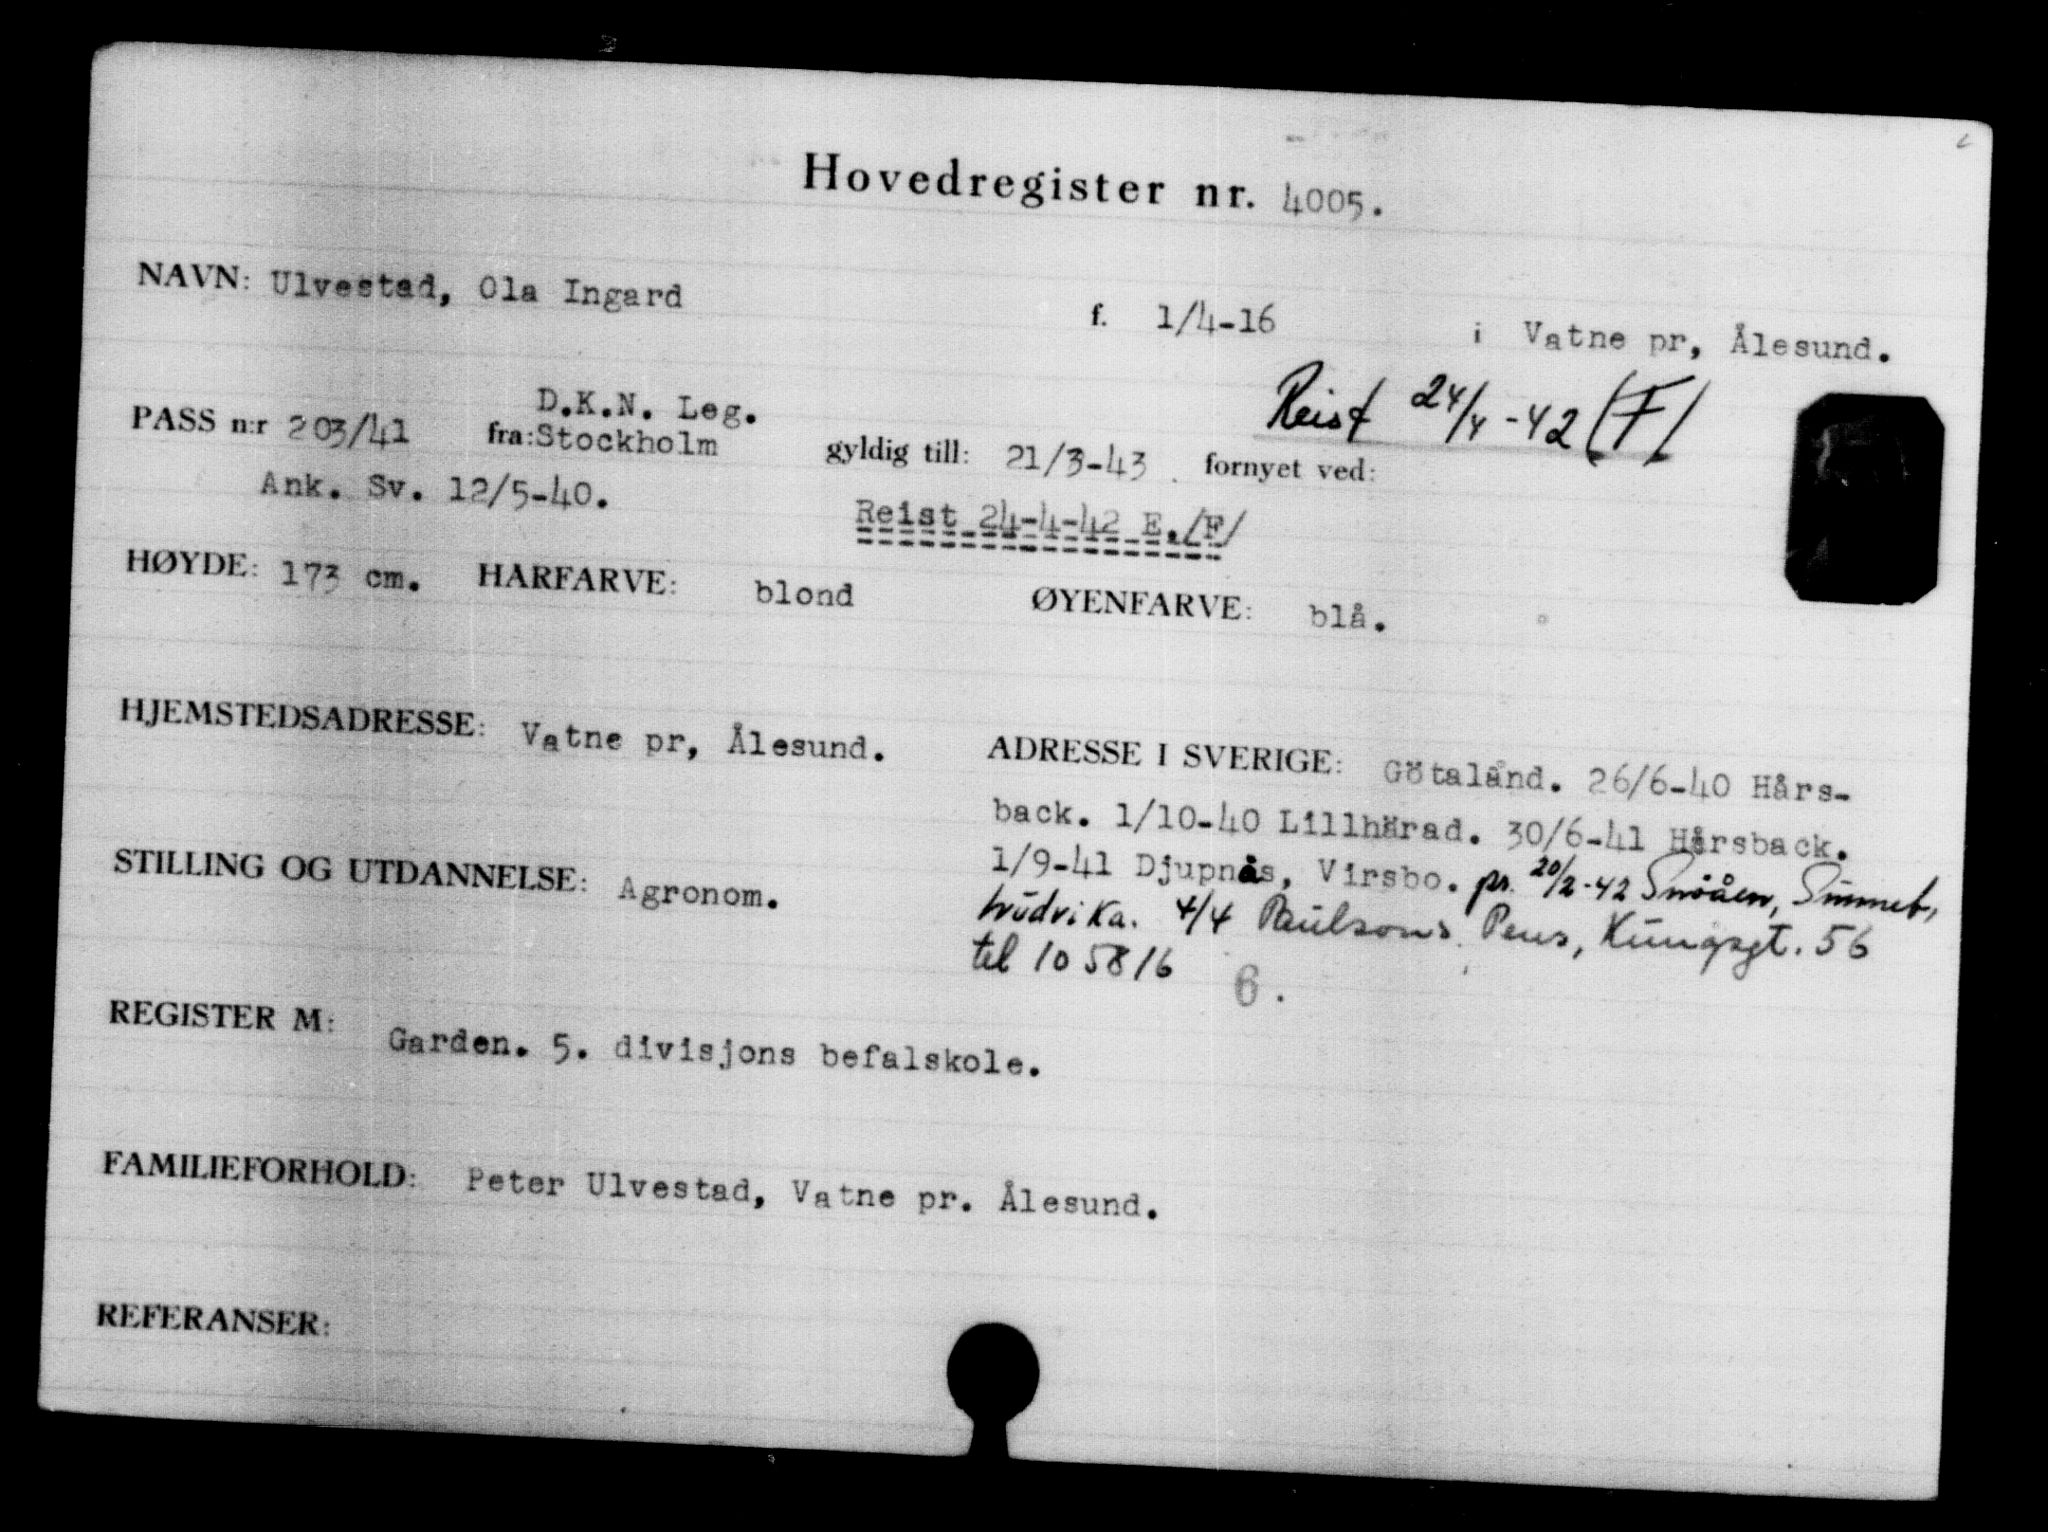 Hovedregister nr. 4005.
NAVN: Ulvestad, Ola Ingard f. 1/4-16 i Vatne pr, Ålesund.
Reist 24/4-42 (F)
D.K.N. Leg.
PASS n:r 203/41 fra: Stockholm gyldig till: 21/3-43 fornyet ved:
Ank. Sv. 12/5-40.
Reist 24-4-42 E./F/
HØYDE: 173 cm. HARFARVE: blond ØYENFARVE: blå.
HJEMSTEDSADRESSE: Vatne pr, Ålesund.
ADRESSE I SVERIGE: Götaland. 26/6-40 Hårs-
back. 1/10-40 Lillhärad. 30/6-41 Hårsback.
1/9-41 Djupnäs, Virsbo. pr. 20/2-42 Snöåen,
4/4 Paulsons Pens, Kungsgt. 56
tel 105816
6.
STILLING OG UTDANNELSE: Agronom.
REGISTER M: Garden. 5. divisjons befalskole.
FAMILIEFORHOLD: Peter Ulvestad, Vatne pr. Ålesund.
REFERANSER: